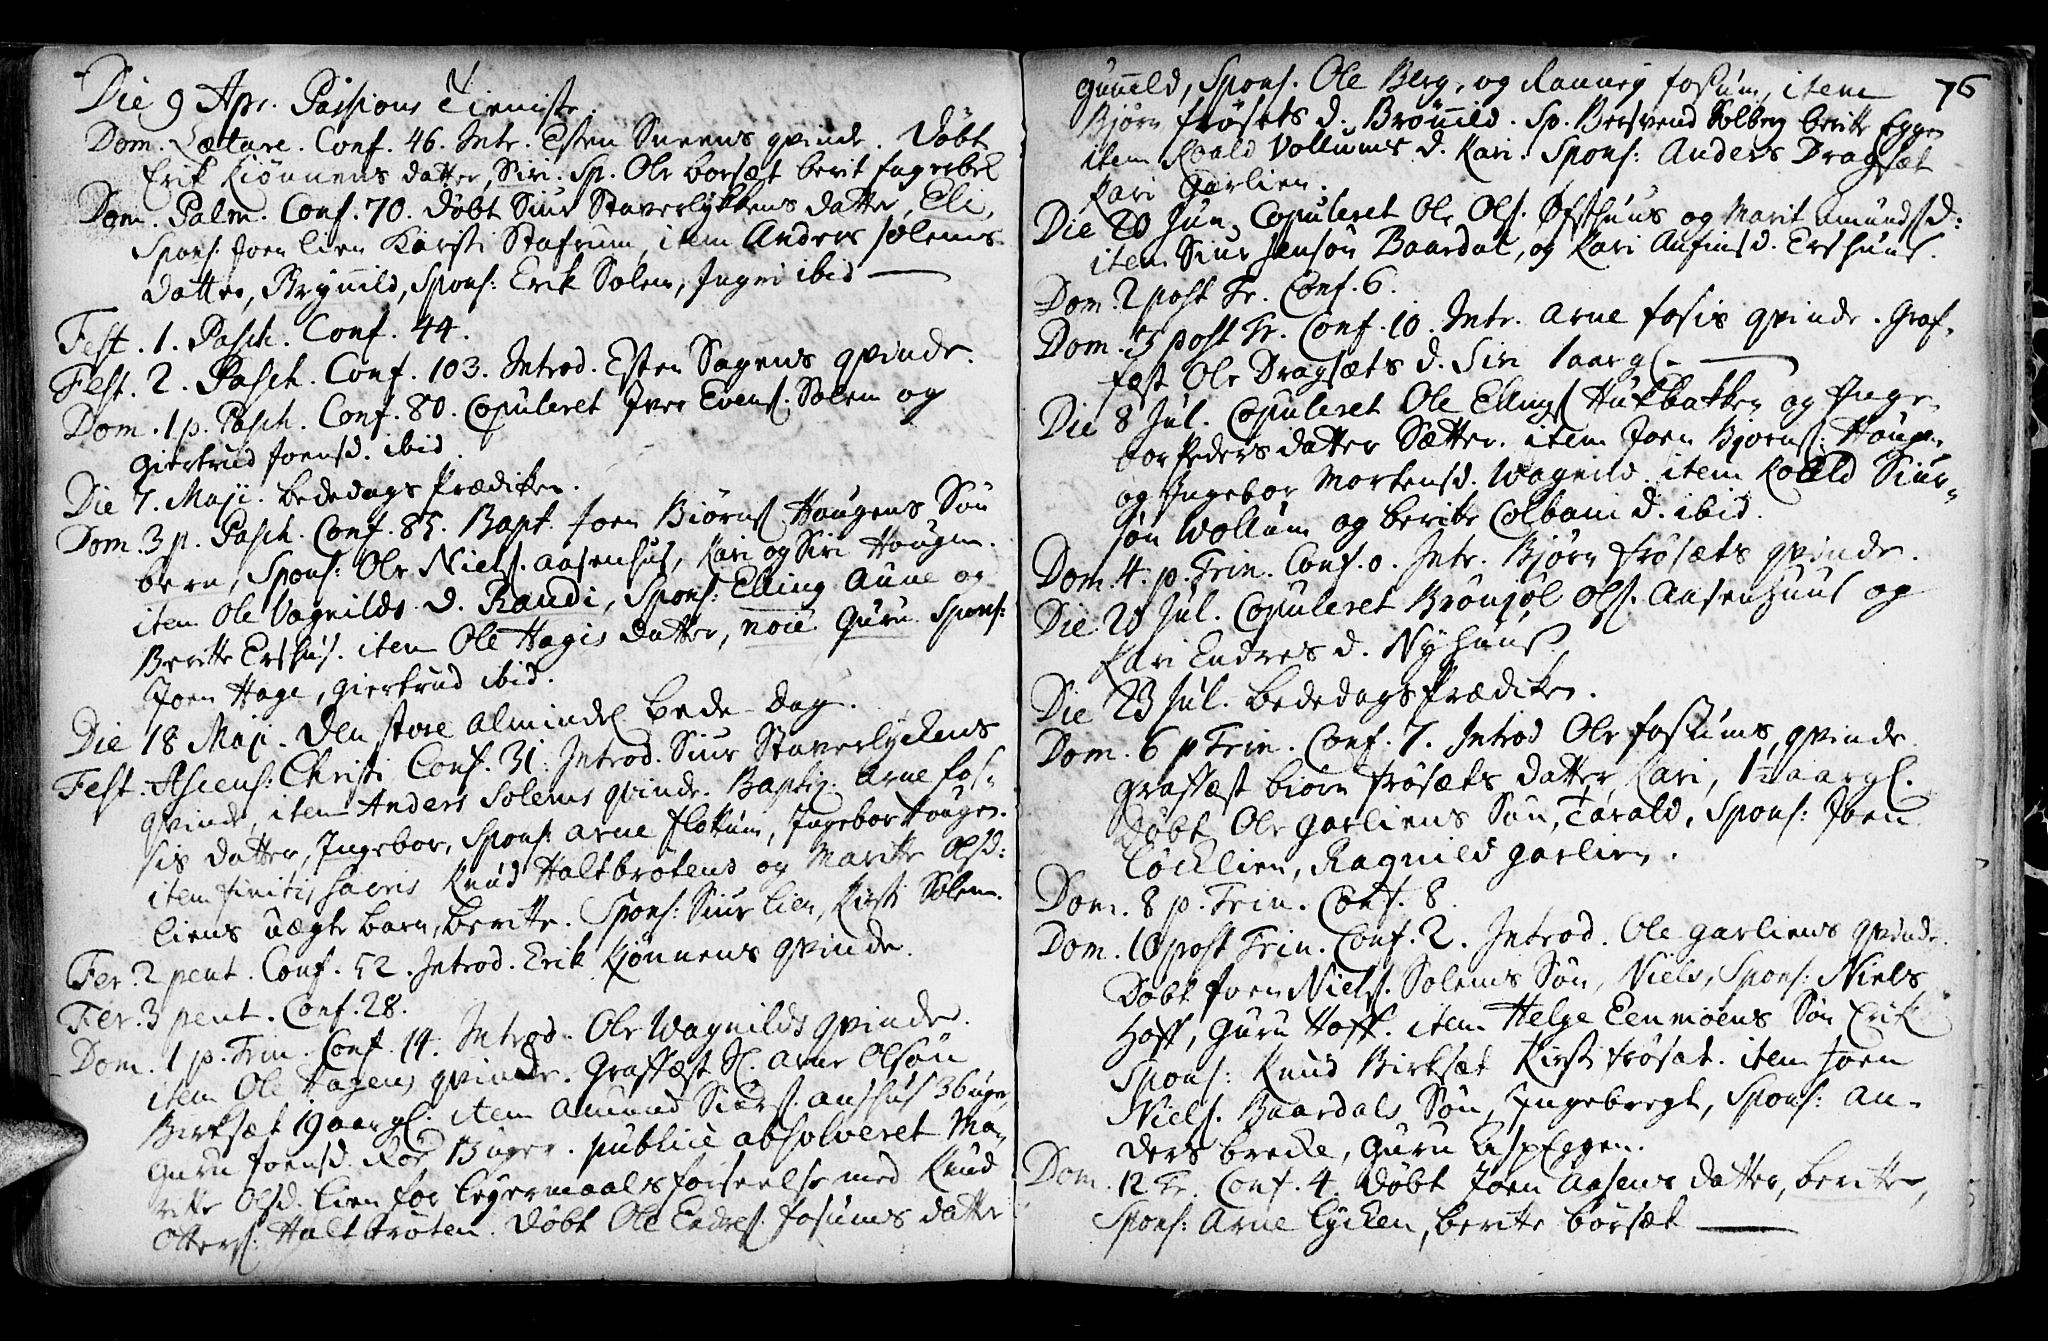 Die 9 Apr. Passions Tieniste.
Dom. Lætare. Conf. 46. Intr. Esten Sneens qvinde. Døbt
Erik Kiønnens datter, Siri. Sp. Ole borsæt berit fagerbek
Dom. Palm. Conf. 70. døbt Siur Staverlykkens datter, Eli,
Spons: Joen lien Karsti Stafrum, item Anders solems
datter, Brynild, Spons: Erik Solem, Ingri ibid
Fest. 1. Pasch. Conf. 44.
Fest. 2. Pasch. Conf. 103. Introd. Esten Sagens qvinde.
Dom. 1 p. Pasch. Conf. 80. Copuleret Iver Evens. Solem og
Giertrud Joensd. ibid.
Die 7. Maji. bededags Prædiken.
Dom. 3 p. Pasch. Conf. 85. Bapt. Joen Biørns Haugens Søn
bern, Spons: Ole Niels. aasenhus, Kari og Siri Haugen.
item Ole Vagnilds d. Randi, Spons: Elling Aune og
Beritte Ershus. item Ole Hagis datter, Guru Spons:
Joen Hage, giertrud ibid.
Die 18 Maji. Den store almindel bede-Dag.
Fest. Ascens: Christi Conf. 31. Introd. Siur Staverlyckens
qvinde, item Anders Solems qvinde. Baptiz. Arne fos-
sis datter, Ingebor, Spons: Arne flokum, Ingebor Haugen.
item finitis sacris Knud Haltbrotens og Maritte Olsd:
liens uægte barn, beritte. Spons: Siur lien, Kirsti Solem.
Fer. 2 pent. Conf. 52. Introd. Erik Kjønnens qvinde.
Fer. 3 pent. Conf. 28.
Dom. 1 p. Trin. Conf. 14. Introd. Ole Wagnilds qvinde.
item Ole Hagens qvinde. Graffæst Sl. Arne Olsøn
Birksæt 19 aar gl. item Amund Siurs. aushus 36 uger,
Guru Joensd. 13 uger. publice absolveret Ma-
ritte Olsd. lien for leyermaals forseelse med Knud
Otters. Haltbroten. Døbt Ole Endres. fosums datter
76
gunild, Spons. Ole Berg, og Ranneig fossum, item
Bjørn frøsets d. Brønild. Sp. Bersvend Solberg beritte Eggen
item Roald Vollums d. Kari. Spons: Anders Dragsæt
Kari Garlien.
Die 20 Jun. Copuleret Ole Ols. Øfsthuus og Marit Amundsd:
item Siur Jensøn Baardal, og Kari Anfinsd. Ershuus.
Dom. 2 post Tr. Conf. 6.
Dom. 3 post Tr. Conf. 10. Intr. Arne fosis qvinde. Graf-
fæst Ole Dragsæts d. Siri 1 aar gl.
Die 8 Jul. Copuleret Ole Ellings Hukbakken og Inge-
bor Peders datter Sætter. item Joen Bjørns: Haugen
og Ingebor Mortensd. Wagnild. item Roald Siur-
søn Wollum og berite Colbani d. ibid.
Dom. 4. p. Trin. Conf. 0. Intr. Bjørn frøsæts qvinde.
Die 20 Jul. Copuleret Brønjol Ols. Aasenhuus og
Kari Endres d. Nyhuus
Die 23 Jul. bededags Prædiken.
Dom. 6 p Trin. Conf. 7. Introd Ole fossums qvinde
Graffæst biørn frøsæts datter, Kari, 1½ aar gl.
Døbt Ole garliens Søn, Tarald, Spons: Joen
Løcklien, Ragnild garlien.
Dom. 8 p. Trin. Conf. 8.
Dom. 10 post Trin. Conf. 2. Introd. Ole garliens qvinde.
Døbt Joen Niels. Solems Søn, Niels, Spons: Niels
Hoff, Guru Hoff. item Helge Eenmoens Søn Erik
Spons: Knud Birksæt Kirsti frøsæt. item Joen
Niels. Baardals Søn, Ingebregt, Spons: An-
ders brecke, Guru EispEggen.
Dom. 12 Tr. Conf. 4. døbt Joen Aasens datter, beritte,
Spons: Arne lycken, berite borsæt